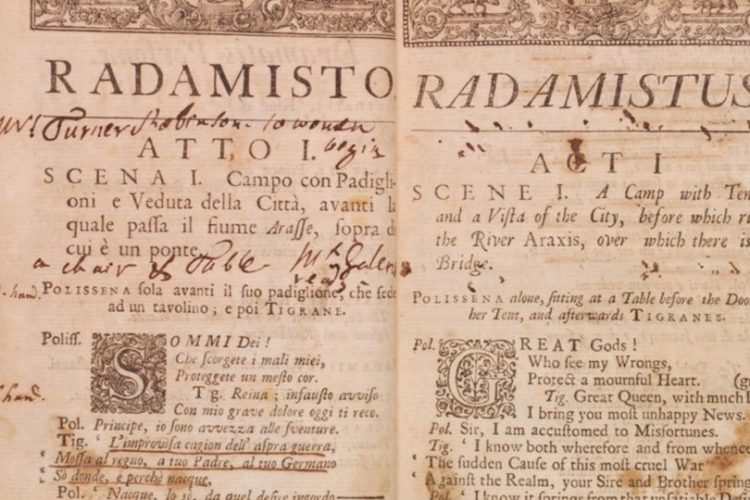 RADAMISTO
Mrs Turner Robinson. 10 women
begin
ATTO I.
SCENA I. Campo con Padigli-
oni e Veduta della Città, avanti
quale passa il fiume Arasse, sopra
cui è un ponte.
a chair & Table
POLISSENA sola avanti il suo padiglione, che sede
ad un tavolino; e poi TIGRANE.
Poliss. SOMMI Dei!
Che scorgete i mali miei,
Proteggete un mesto cor.
Tg. Reina; infausto avviso
Con mio grave dolore oggi ti reco.
Pol. Principe, io sono avvezza alle sventure.
Tig. ' L'improvisa cagion dell' aspra guerra,
' Mossa al regno, a tuo Padre, al tuo Germano
' Sò donde, e perchè nacque,
Pol. ' Nacque, lo sò, da quel desire ingordo
RADAMISTUS
ACT I
SCENE I. A Camp with
and a Vista of the City, before which
the River Araxis, over which there is
Bridge.
POLISSENA alone, sitting at a Table before the
her Tent, and afterwards TIGRANES.
Pol. GREAT Gods!
Who see my Wrongs,
Protect a mournful Heart.
Tig. Great Queen, with much
I bring you most unhappy News.
Pol. Sir, I am accustomed to Misfortunes.
Tig. ' I know both wherefore and from whence
' The sudden Cause of this most cruel War
' Against the Realm, your Sire and Brother
Pol. ' I know it springs from that unsatiable